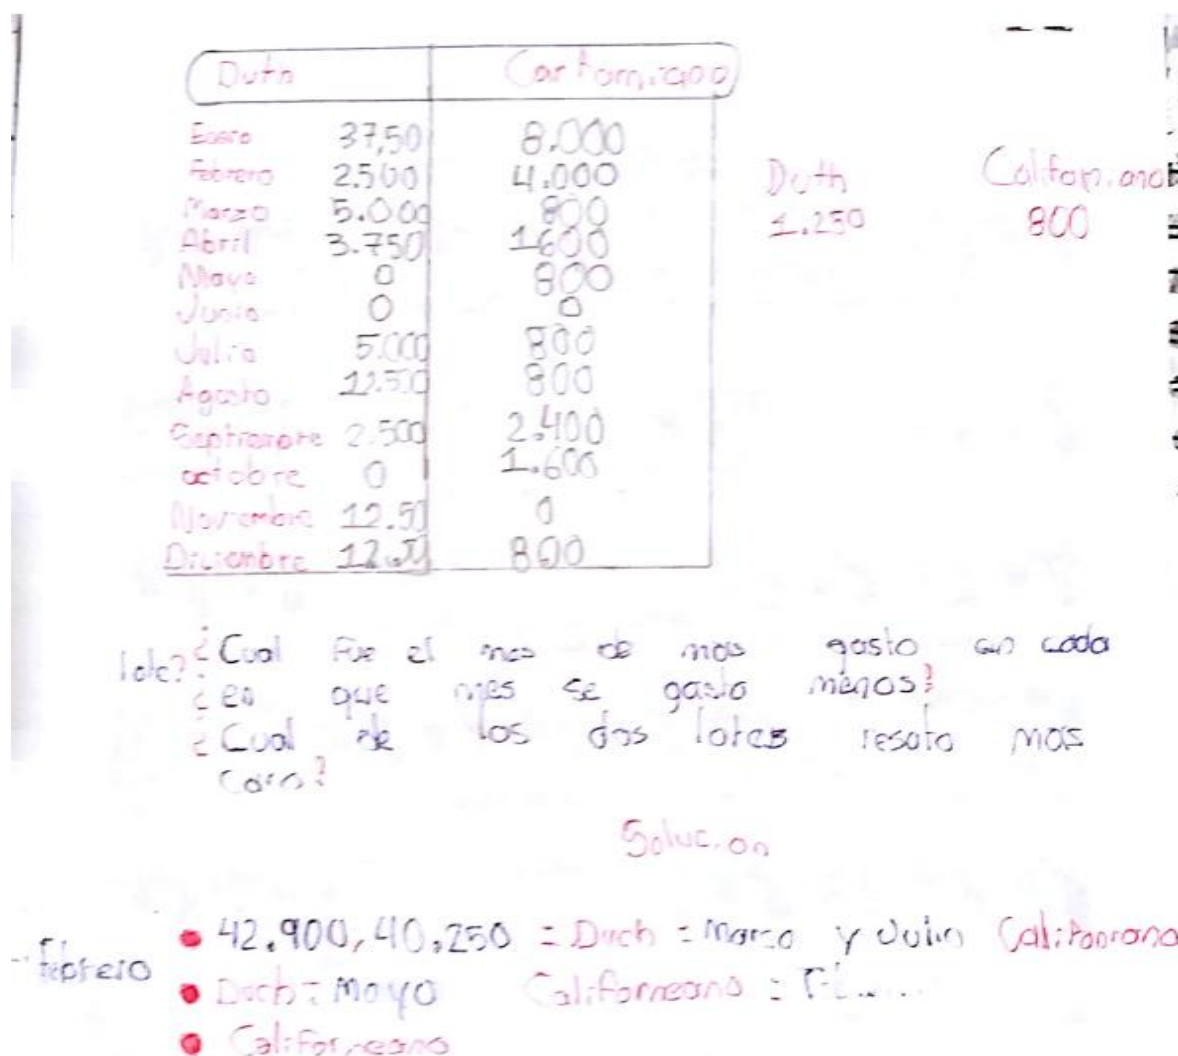 Duth Carfornicano
Enero 37,50 8.000
Febrero 2.500 4.000
Marzo 5.000 800
Abril 3.750 1600
Mayo 0 800
Junio 0 0
Julio 5.000 800
Agosto 12.500 800
Septiembre 2.500 2.400
octobre 0 1.600
Noviembre 12.50 0
Diciembre 12.50 800
Duth Californiano
1.250 800
¿Cual fue el mes de mas gasto en cada
lote?
¿en que mes se gasto menos?
¿Cual de los dos lotes resato mas
caro?
Solucion
42.900, 40.250 = Duch = Marzo y Julio Califoorano
febrero
Duch = mayo Californeano =
Californeano